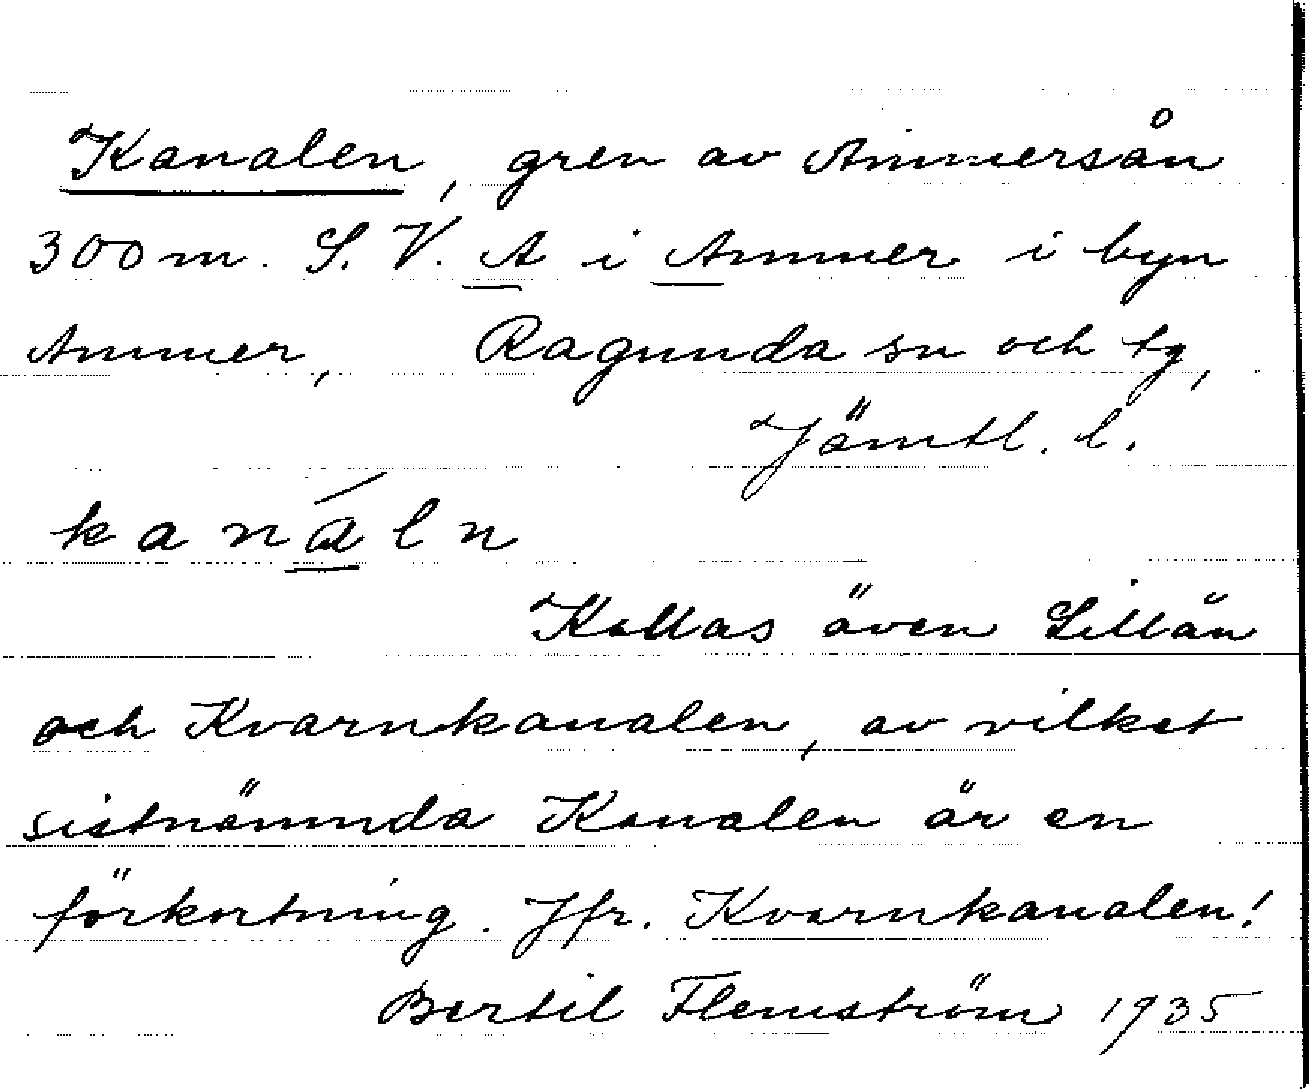 Kanalen, gren av Ammersån
300 m. S. V. A i Ammer i byn
Ammer, Ragunda sn och tg,
Jämtl. l.
kanáln
Kallas även Lillån
och Kvarnkanalen, av vilket
sistnämnda Kanalen är en
förkortning. Jfr. Kvarnkanalen!
Bertil Flemström 1935